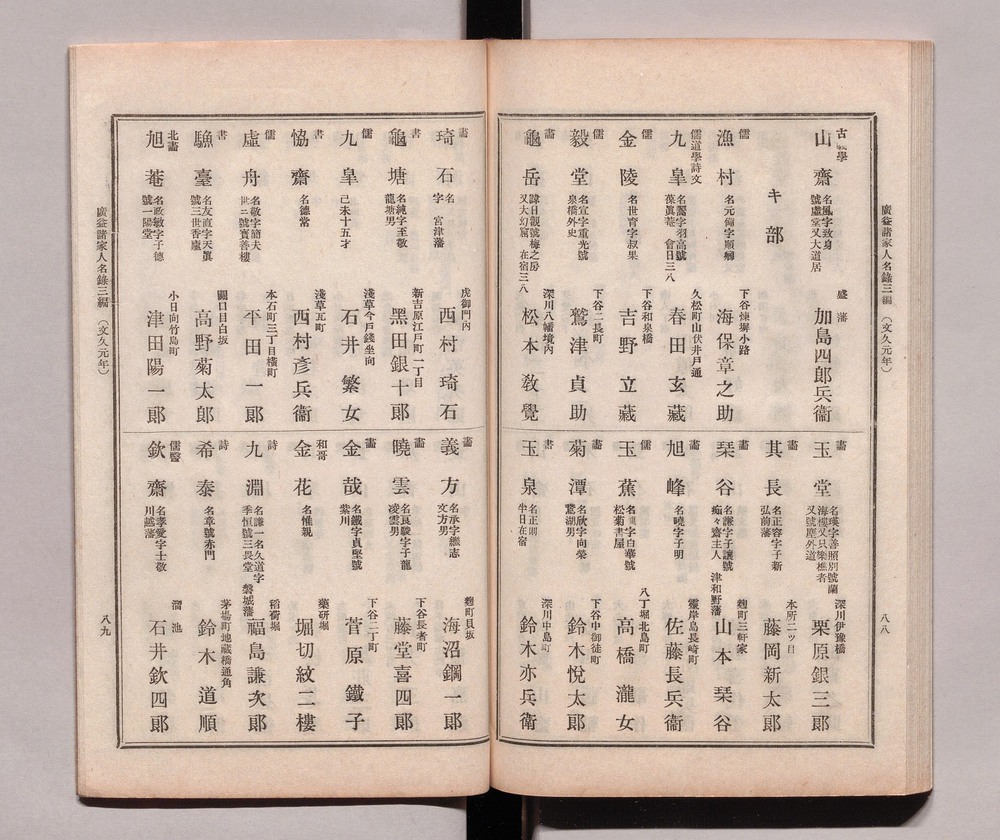 廣益諸家人名錄三編 (文久元年)
八八
古學
山齋 名鳳字致身 號盧堂又大道居 盛藩 加島四郎兵衞
キ部
儒
漁村 名元備字順 下谷煉塀小路 海保章之助
儒道學詩文
九皐 字羽高號葆眞菴 會日三八 久松町山伏井戸通 春田玄藏
儒
金陵 名世育字叔果 下谷和泉橋 吉野立藏
儒
毅堂 名宣字重光號泉橋外史 下谷二長町 鷲津貞助
畵
龜岳 諱日觀號梅之房又大幻窟 在宿三八 深川八幡境內 松本敎覺
畵
玉堂 名瑛字善照別號蘭海樓又只樂樵者又號塵外道 深川伊豫橋 栗原銀三郎
畵
其長 名正容字子新 弘前藩 本所二ッ目 藤岡新太郎
畵
琹谷 名謙字子讓號癡々齋主人 津和野藩 麹町三軒家 山本琹谷
畵
旭峰 名曉字子明 靈岸島長崎町 佐藤長兵衞
儒
玉蕉 字白華號松菊書屋 八丁堀北島町 高橋瀧女
畵
菊潭 名欣字向榮 鷲湖男 下谷中御徒町 鈴木悅太郎
書
玉泉 名正則 半日在宿 深川中島町 鈴木亦兵衞
畵
琦石 名 字 宮津藩 虎御門內 西村琦石
書
龜塘 名純字至敬 龍塘男 新吉原江戸町一丁目 黑田銀十郎
儒
九皐 己未十五才 淺草今戸錢坐向 石井繁女
書
恊齋 名德常 淺草瓦町 西村彥兵衞
儒
虛舟 名敬字節夫 世ニ號寶善樓 本石町三丁目橫町 平田一郎
書
驗臺 名友直字天眞 號三世香廬 關口目白坂 高野菊太郎
北畵
旭菴 名政敏字子德 號一陽堂 小日向竹島町 津田陽一郎
畵
義方 名承字繼志 文方男 麹町貝坂 海沼鋼一郎
畵
曉雲 名良駿字子龍 凌雲男 下谷長者町 藤堂喜四郎
畵
金哉 名鐵字貞堅號紫川 下谷二丁町 菅原鐵子
和哥
金花 名惟親 藥研堀 堀切紋二樓
詩
九淵 名謙一名久道字季恒號三長堂 磐城藩 稻荷堀 福島謙次郎
詩
希泰 名章號赤門 茅場町地藏橋通角 鈴木道順
儒醫
欽齋 名孝愛字士敬 川越藩 溜池 石井欽四郎
廣益諸家人名錄三編 (文久元年)
八九